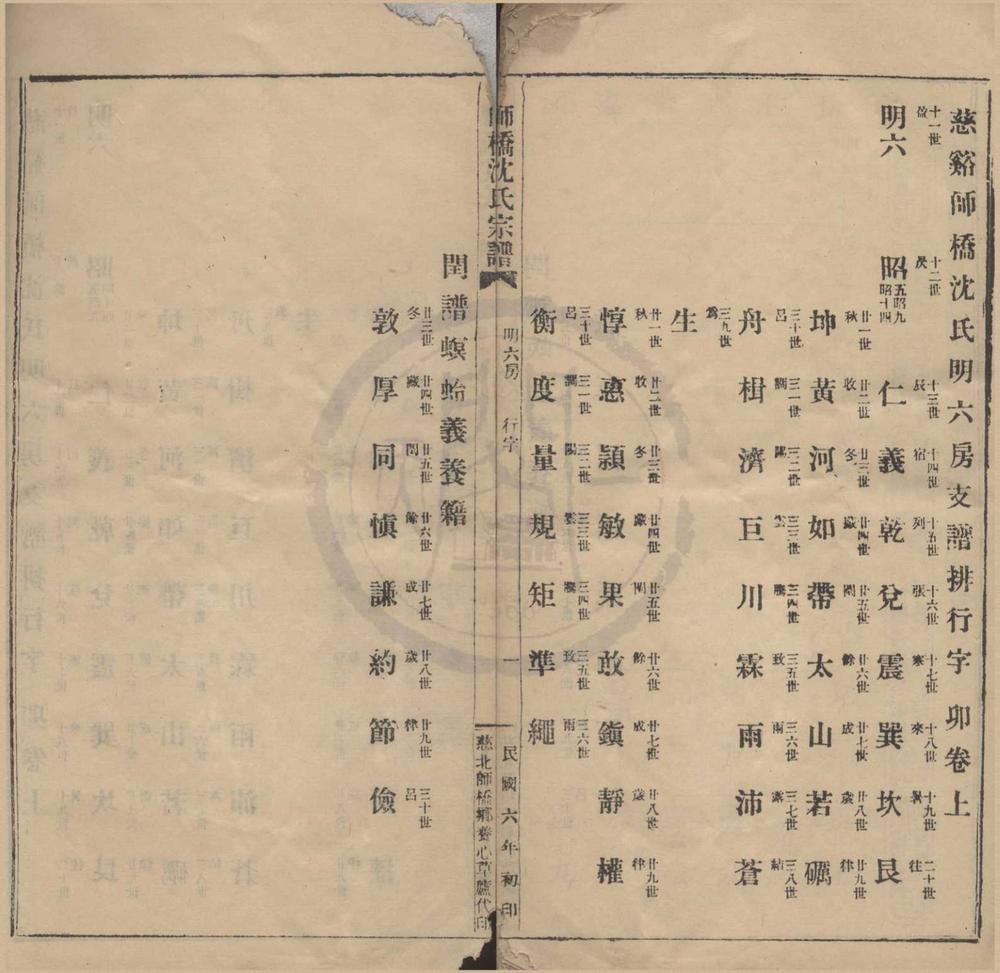 慈谿師橋沈氏明六房支譜排行字卯卷上
十一世 盈 十二世 昃 十三世 辰 十四世 宿 十五世 列 十六世 張 十七世 寒 十八世 來 十九世 暑 二十世 往
明六 昭 五昭九 昭十四 仁 義 乾 兌 震 巽 坎 艮
廿一世 秋 廿二世 收 廿三世 冬 廿四世 藏 廿五世 閏 廿六世 餘 廿七世 成 廿八世 歲 廿九世 律
坤 黃 河 如 帶 太 山 若 礪
三十世 呂 三一世 調 三二世 陽 三三世 雲 三四世 騰 三五世 致 三六世 雨 三七世 露 三八世 結
舟 楫 濟 巨 川 霖 雨 沛 蒼
三九世 爲
生
廿一世 秋 廿二世 收 廿三世 冬 廿四世 藏 廿五世 閏 廿六世 餘 廿七世 成 廿八世 歲 廿九世 律
惇 悳 頴 敏 果 敢 鎭 靜 權
三十世 呂 三一世 調 三二世 陽 三三世 雲 三四世 騰 三五世 致 三六世 雨
衡 度 量 規 矩 準 繩
師橋沈氏宗譜 明六房 行字 一 民國六年初印
慈北師橋鄉養心草廬代印
閏譜螟蛉義養籍
廿三世 冬 廿四世 藏 廿五世 閏 廿六世 餘 廿七世 成 廿八世 歲 廿九世 律 三十世 呂
敦 厚 同 愼 謙 約 節 儉